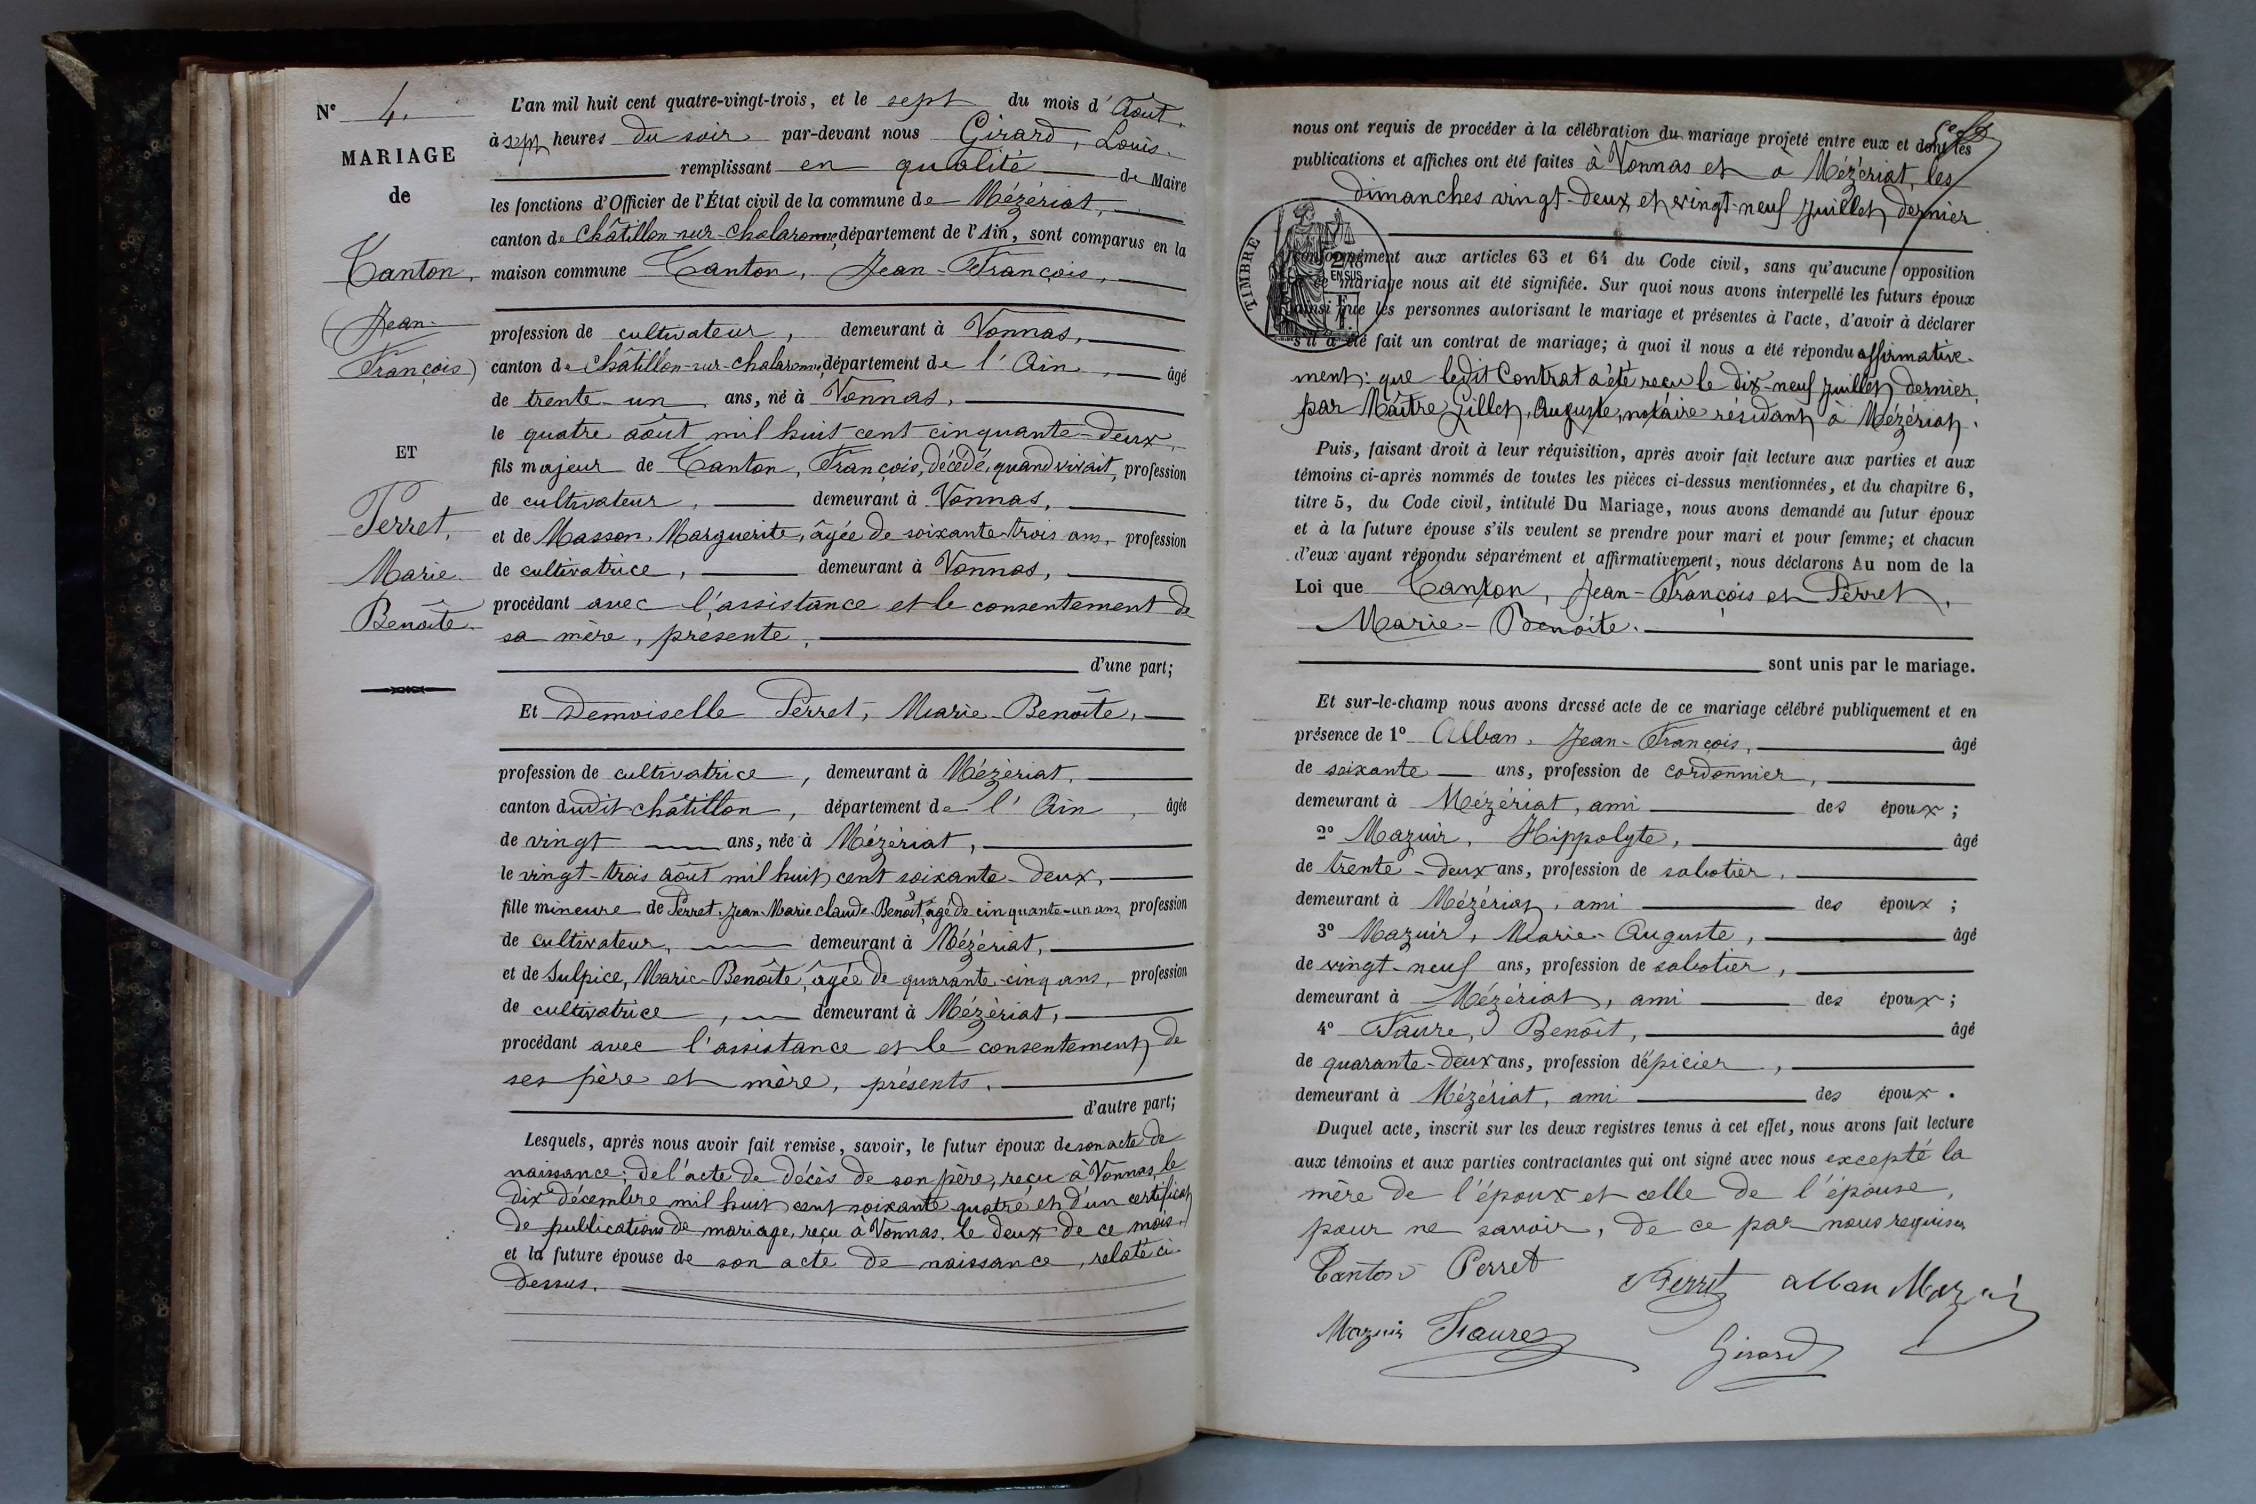 N° 4.
MARIAGE
de
Canton,
(Jean-
François)
ET
Perret,
Marie
Benoîte.
L'an mil huit cent quatre-vingt-trois, et le sept du mois d'Août,
à sept heures du soir par-devant nous Girard, Louis.
remplissant en qualité de Maire
les fonctions d'Officier de l'État civil de la commune de Mézériat,
canton de Châtillon-sur-Chalaronne, département de l'Ain, sont comparus en la
maison commune Canton, Jean-François,
profession de cultivateur, demeurant à Vonnas,
canton de Châtillon-sur-Chalaronne, département de l'Ain, âgé
de trente-un ans, né à Vonnas,
le quatre août mil huit cent cinquante-deux,
fils majeur de Canton, François, décédé, quand vivait, profession
de cultivateur, demeurant à Vonnas,
et de Masson, Marguerite, âgée de soixante-trois ans, profession
de cultivatrice, demeurant à Vonnas,
procédant avec l'assistance et le consentement de
sa mère, présente,
d'une part;
Et Demoiselle Perret, Marie-Benoîte,
profession de cultivatrice, demeurant à Mézériat,
canton dudit châtillon, département de l'Ain, âgée
de vingt ans, née à Mézériat,
le vingt-trois août mil huit cent soixante-deux,
fille mineure de Perret, Jean-Marie Claude-Benoît, âgé de cinquante-un ans, profession
de cultivateur, demeurant à Mézériat,
et de Sulpice, Marie-Benoîte, âgée de quarante-cinq ans, profession
de cultivatrice, demeurant à Mézériat,
procédant avec l'assistance et le consentement de
ses père et mère, présents.
d'autre part;
Lesquels, après nous avoir fait remise, savoir, le futur époux de son acte de
naissance; de l'acte de décès de son père, reçu à Vonnas, le
dix décembre mil huit cent soixante quatre et d'un certificat
de publications de mariage, reçu à Vonnas, le deux de ce mois.
et la future épouse de son acte de naissance, relaté ci-
dessus.
nous ont requis de procéder à la célébration du mariage projeté entre eux et dont les
publications et affiches ont été faites à Vonnas et à Mézériat, les
dimanches vingt-deux et vingt-neuf Juillet dernier
TIMBRE
2/10
EN SUS
conformément aux articles 63 et 64 du Code civil, sans qu'aucune opposition
mariage nous ait été signifiée. Sur quoi nous avons interpellé les futurs époux
ainsi que les personnes autorisant le mariage et présentes à l'acte, d'avoir à déclarer
s'il a été fait un contrat de mariage; à quoi il nous a été répondu affirmative-
ment: que ledit Contrat a été reçu le dix-neuf Juillet dernier,
par Maître Gillet, Auguste, notaire résidant à Mézériat.
Puis, faisant droit à leur réquisition, après avoir fait lecture aux parties et aux
témoins ci-après nommés de toutes les pièces ci-dessus mentionnées, et du chapitre 6,
titre 5, du Code civil, intitulé Du Mariage, nous avons demandé au futur époux
et à la future épouse s'ils veulent se prendre pour mari et pour femme; et chacun
d'eux ayant répondu séparément et affirmativement, nous déclarons Au nom de la
Loi que Canton, Jean-François et Perret,
Marie-Benoîte.
sont unis par le mariage.
Et sur-le-champ nous avons dressé acte de ce mariage célébré publiquement et en
présence de 1° Alban, Jean-François, âgé
de soixante ans, profession de cordonnier,
demeurant à Mézériat, ami des époux;
2° Mazuir, Hippolyte, âgé
de trente-deux ans, profession de sabotier,
demeurant à Mézériat, ami des époux;
3° Mazuir, Marie-Auguste, âgé
de vingt-neuf ans, profession de sabotier,
demeurant à Mézériat, ami des époux;
4° Faure, Benoît, âgé
de quarante-deux ans, profession d'épicier,
demeurant à Mézériat, ami des époux.
Duquel acte, inscrit sur les deux registres tenus à cet effet, nous avons fait lecture
aux témoins et aux parties contractantes qui ont signé avec nous excepté la
mère de l'époux et celle de l'épouse,
pour ne savoir, de ce par nous requises
Canton Perret Perret alban Mazuir
Mazuir Faure Girard